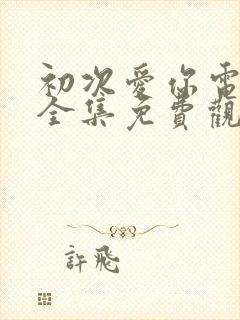 初次愛你電
全集免費觀
許飛